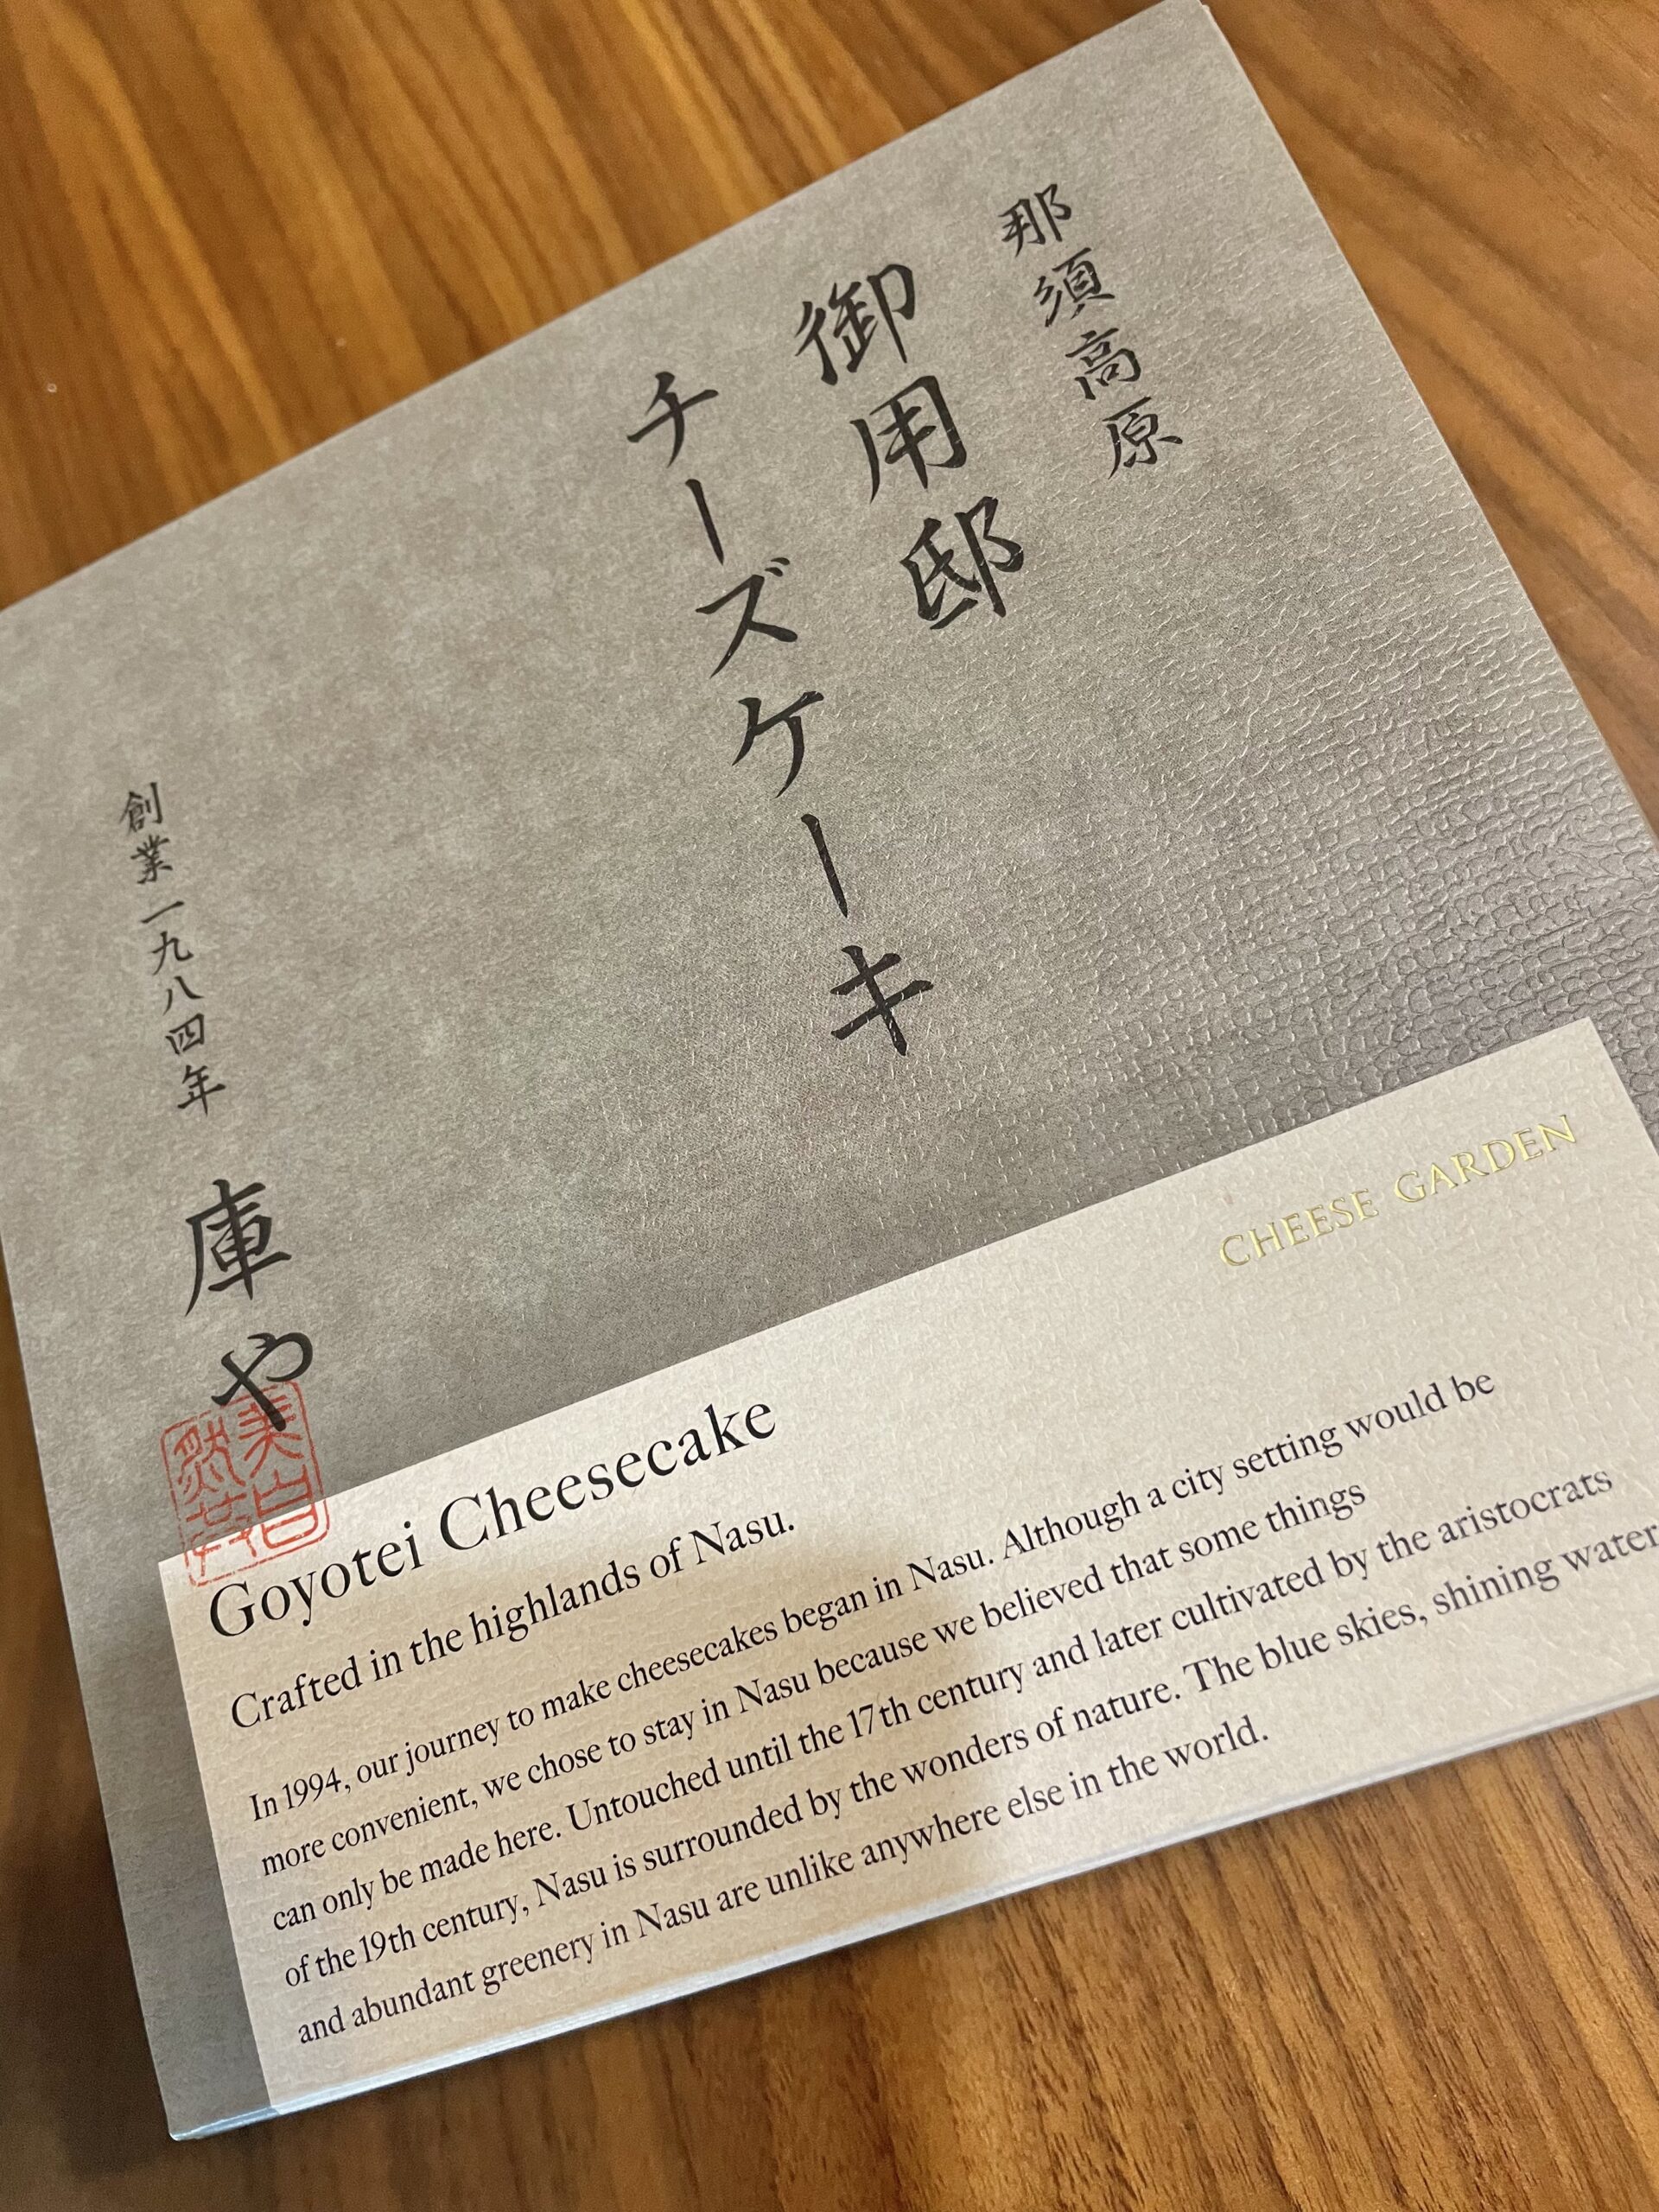 那須高原
御用邸
チーズケーキ
創業一九八四年
庫や
CHEESE GARDEN
Goyotei Cheesecake
Crafted in the highlands of Nasu.
In 1994, our journey to make cheesecakes began in Nasu. Although a city setting would be
more convenient, we chose to stay in Nasu because we believed that some things
can only be made here. Untouched until the 17th century and later cultivated by the aristocrats
of the 19th century, Nasu is surrounded by the wonders of nature. The blue skies, shining water
and abundant greenery in Nasu are unlike anywhere else in the world.